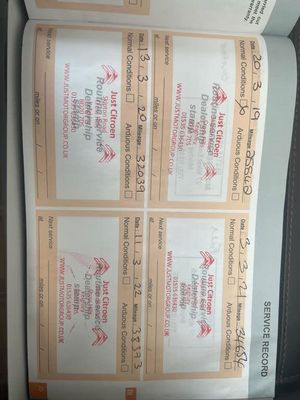 SERVICE RECORD
Date 20 / 3 / 19 Mileage
Normal Conditions Arduous Conditions
Just Citroen
Routine Service
Dealership
stamp
WWW.JUSTMOTORGROUP.CO.UK
Next service
at miles or on / /
Date 3 / 3 / 21 Mileage 34654
Normal Conditions Arduous Conditions
Just Citroen
Routine Service
Dealership
stamp
01535 636430
WWW.JUSTMOTORGROUP.CO.UK
Next service
at miles or on / /
Date 13 / 3 / 20 Mileage 32039
Normal Conditions Arduous Conditions
Just Citroen
Routine Service
Dealership
WWW.JUSTMOTORGROUP.CO.UK
Next service
at miles or on / /
Date 11 / 3 / 22 Mileage 38373
Normal Conditions Arduous Conditions
Just Citroen
Routine Service
Dealership
stamp
01535 636430
WWW.JUSTMOTORGROUP.CO.UK
Next service
at miles or on / /